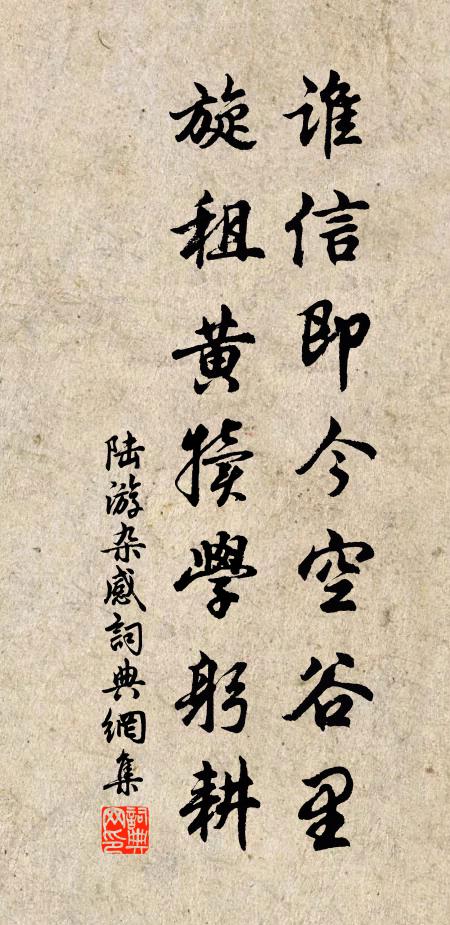 谁信即今空谷里
旋租黄犊學躬耕
陆游杂感詞典網集
詞典网印